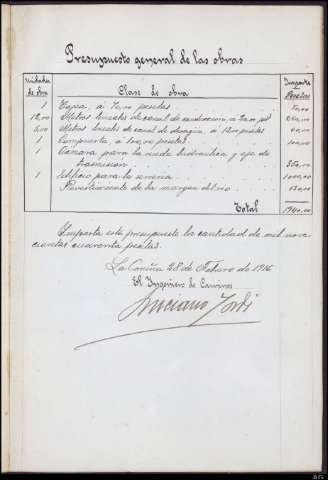 Presupuesto general de las obras
Unidades de obra Clase de obra Importe Pesetas
1 Tapa, á 70,00 pesetas 70,00
12,00 Metros lineales de canal de conduccion, á 20,00 pts 240,00
5,00 Metros lineales de canal de desagüe, á 12,00 pesetas 60,00
1 Compuerta, a 100,00 pesetas 100,00
1 Cámara para la rueda hidraulica y eje de
trasmision
1 Edificio para la serrería 1000,00
Revestimiento de la margen del rio
Total 1940,00
Importa este presupuesto la cantidad de mil nove-
cientas cuarenta pesetas.
La Coruña 28 de Febrero de 1916
El Ingeniero de Caminos
Luciano Yordi
AG